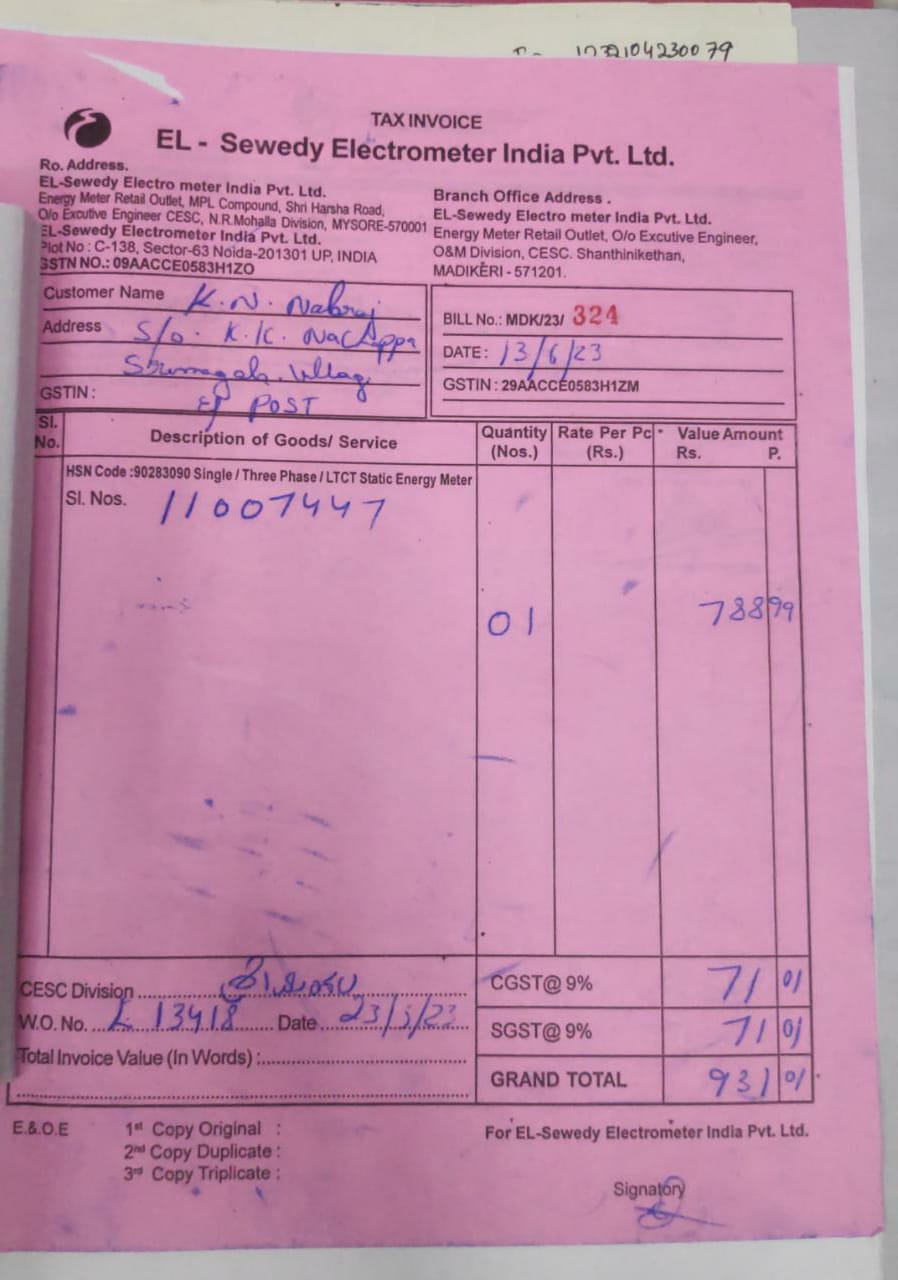 1232104230079
TAX INVOICE
EL - Sewedy Electrometer India Pvt. Ltd.
Ro. Address.
EL-Sewedy Electro meter India Pvt. Ltd.
Energy Meter Retail Outlet, MPL Compound, Shri Harsha Road,
O/o Excutive Engineer CESC, N.R.Mohalla Division, MYSORE-570001
EL-Sewedy Electrometer India Pvt. Ltd.
Plot No : C-138, Sector-63 Noida-201301 UP, INDIA
GSTN NO.: 09AACCE0583H1ZO
Branch Office Address .
EL-Sewedy Electro meter India Pvt. Ltd.
Energy Meter Retail Outlet, O/o Excutive Engineer,
O&M Division, CESC. Shanthinikethan,
MADIKERI - 571201.
Customer Name K. N.
Address S/o. K. K. Nachappa
Village
GSTIN : & POST
BILL No.: MDK/23/ 324
DATE : 13/6/23
GSTIN : 29AACCE0583H1ZM
Sl. No. Description of Goods/ Service Quantity (Nos.) Rate Per Pc (Rs.) Value Amount Rs. P.
HSN Code :90283090 Single / Three Phase / LTCT Static Energy Meter
Sl. Nos. 11007447
01 788 99
CESC Division
W.O. No. 13418 Date
Total Invoice Value (In Words) :
CGST@ 9% 71 01
SGST@ 9% 71 01
GRAND TOTAL 931 01
E.&.O.E 1st Copy Original :
2nd Copy Duplicate :
3rd Copy Triplicate :
For EL-Sewedy Electrometer India Pvt. Ltd.
Signatory